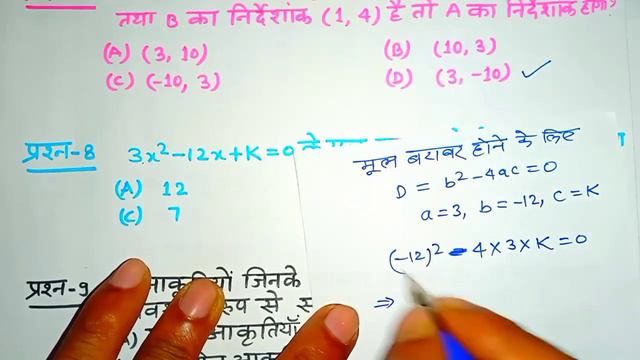 तथा B का निर्देशांक (1, 4) है तो A का निर्देशांक होगा?
(A) (3, 10) (B) (10, 3)
(C) (-10, 3) (D) (3, -10) ✓
प्रश्न-8 3x²-12x+K=0
(A) 12
(C) 7
मूल बराबर होने के लिए
D = b²-4ac=0
a=3, b=-12, c=K
(-12)² - 4×3×K=0
⇒
प्रश्न-9 जिनके
रूप से